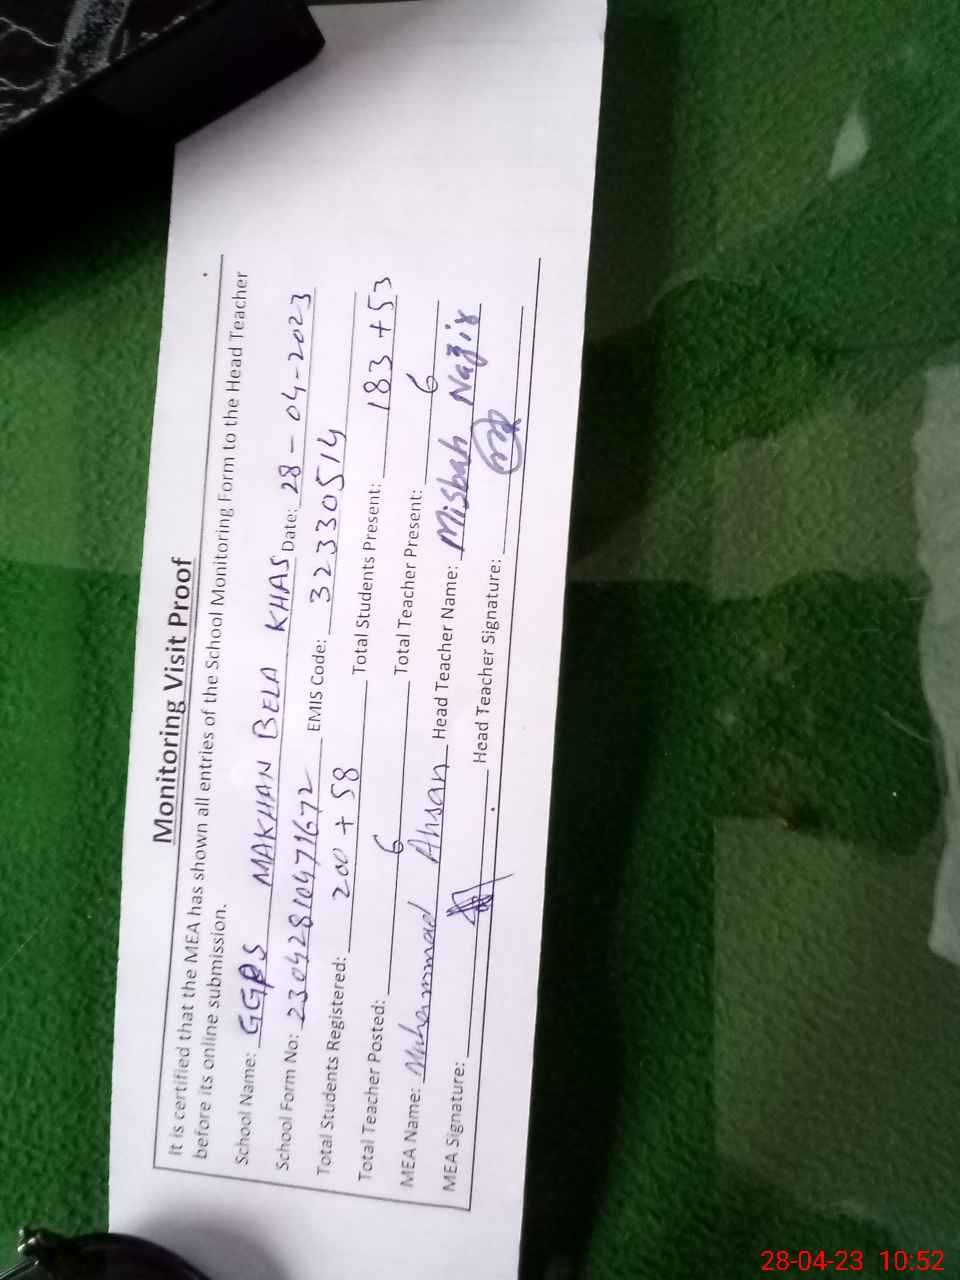 Monitoring Visit Proof
It is certified that the MEA has shown all entries of the School Monitoring Form to the Head Teacher
before its online submission.
School Name: GGPS MAKHAN BELA KHAS
School Form No: 23042810471672 Date: 28-04-2023
Total Students Registered: 200 + 58 EMIS Code: 32330514
Total Students Present: 183 + 53
Total Teacher Posted: 6 Total Teacher Present: 6
MEA Name: Muhammad Ahsan Head Teacher Name: Misbah Nazir
MEA Signature: Head Teacher Signature:
28-04-23 10:52